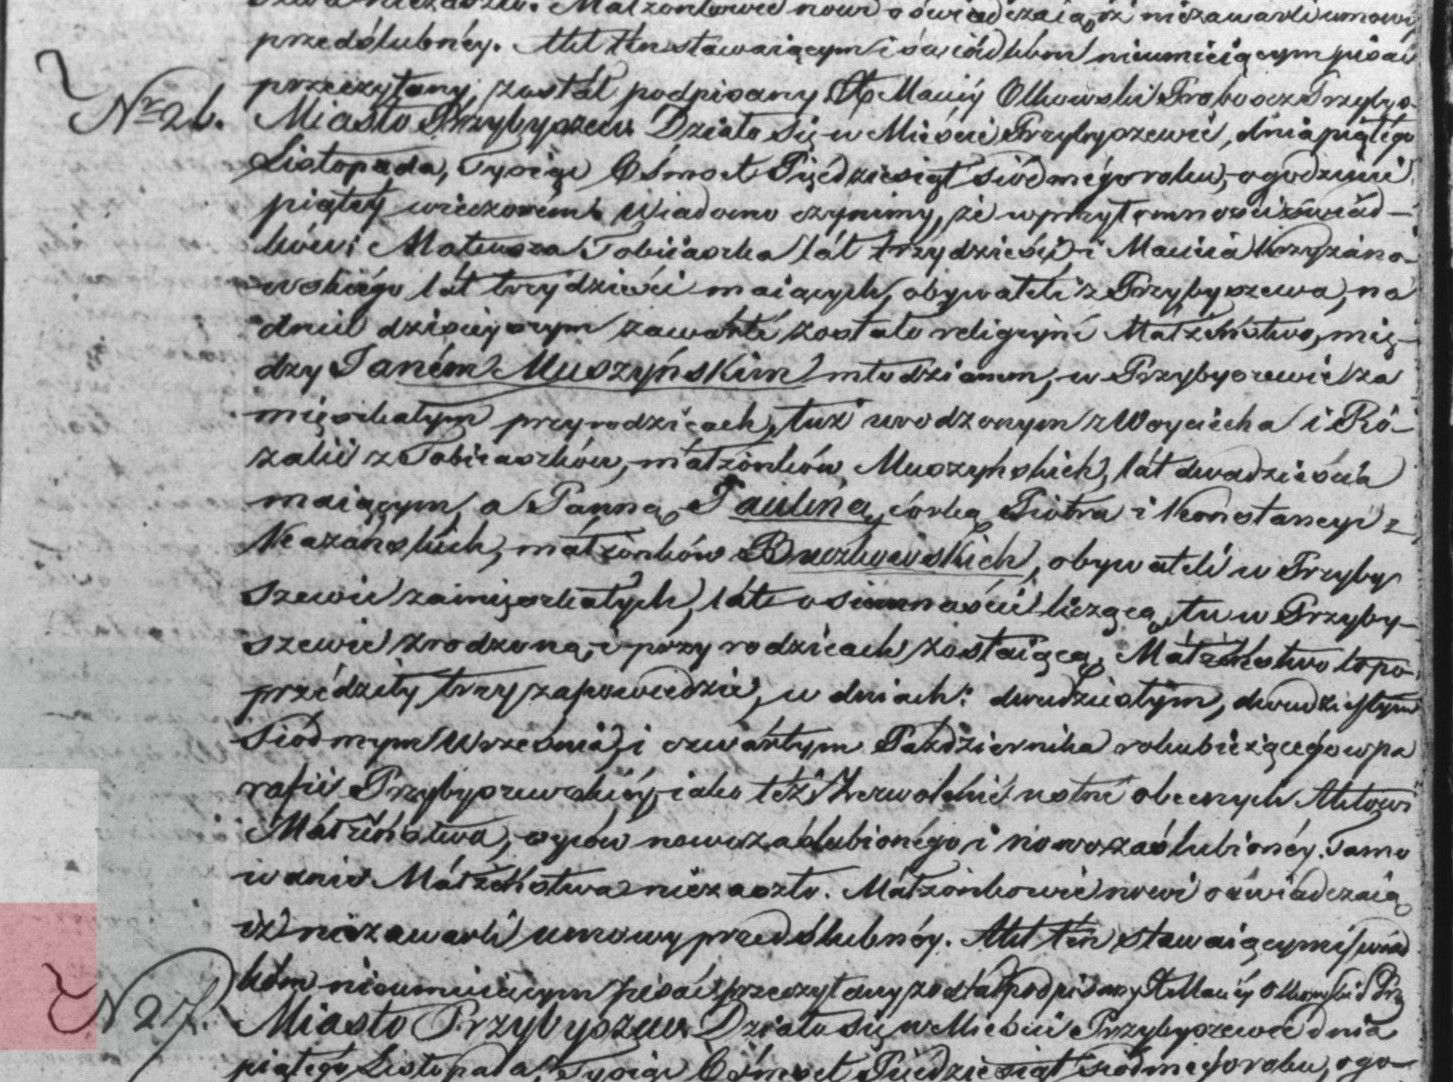 przedślubnéy. Akt ten stawaiącym i świádkóm nieumieiącym pisać
Nr 26. przeczytany, został podpisany X Maciéy Olkowski Proboszcz Przybysz
Miasto Przybyszew. Działo się w Mieście Przybyszewie, dnia piątego
Listopada, Tysiąc Ośmset Pięćdziesiąt siódmégo roku, o godzinie
piątéy wieczorém. Wiadomo czynimy, że w przytomności świád-
ków: Mateusza Tobiiaszka lát trzydzieści i Macieia Krzyżano-
wskiégo lát trzydzieści maiących, obywateli z Przybyszewa, na
dniu dzisieyszym zawarté zostało religiyné Małżéństwo, mię-
dzy Janém Muszyńskim młodzianem, w Przybyszewie za
mięszkałym przy rodzicach, tuż urodzonym z Woyciecha i Ró-
zalii z Tobiiaszków, małżonków Muszyńskich, lát dwadzieścia
maiącym, a Panną Pauliną, córką Piotra i Konstancyi z
Kazańskich, małżonków Buczkowskich, obywateli w Przyby
szewie zamięszkałych, lát osiemnaście liczącą, tu w Przyby-
szewie zrodzoną, i przy rodzicach zostaiącą. Małżéństwo to po-
przédziły trzy zapowiedzie, w dniach: dwudziestym, dwudziestym
siódmym Września, i czwártym Października roku bieżącégo w pa
rafii Przybyszewskiéy, iako téż zezwolenie ustné obecnych Aktowi
Małżéństwa, oyców nowozaślubionégo i nowozaślubionéy. Tamo
wanie Małżéństwa nie zaszło. Małżonkowie nowi oświadczaią
iż nie zawarli umowy przedślubnéy. Akt tén stawaiącym i świád
kóm nieumieiącym pisać przeczytany został podpisany X Maciéy Olkowski P. Prz
N 27. Miasto Przybyszew. Działo się w Mieście Przybyszewie dnia
piątégo Listopada, Tysiąc Ośmset Pięćdziesiąt siódmégo roku, o go-